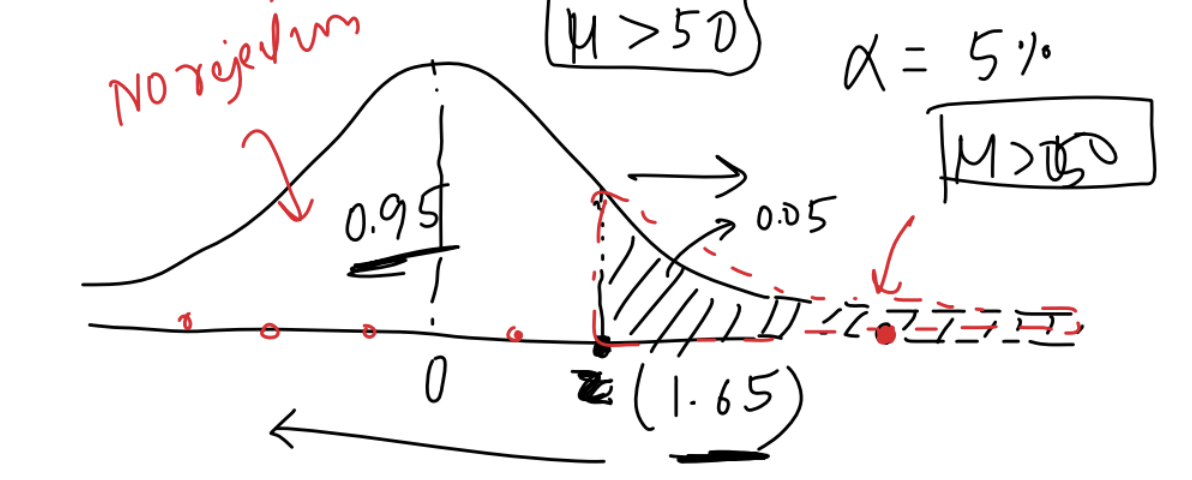 No rejection
μ > 50
α = 5%
μ > 50
0.95
0.05
0
z (1.65)